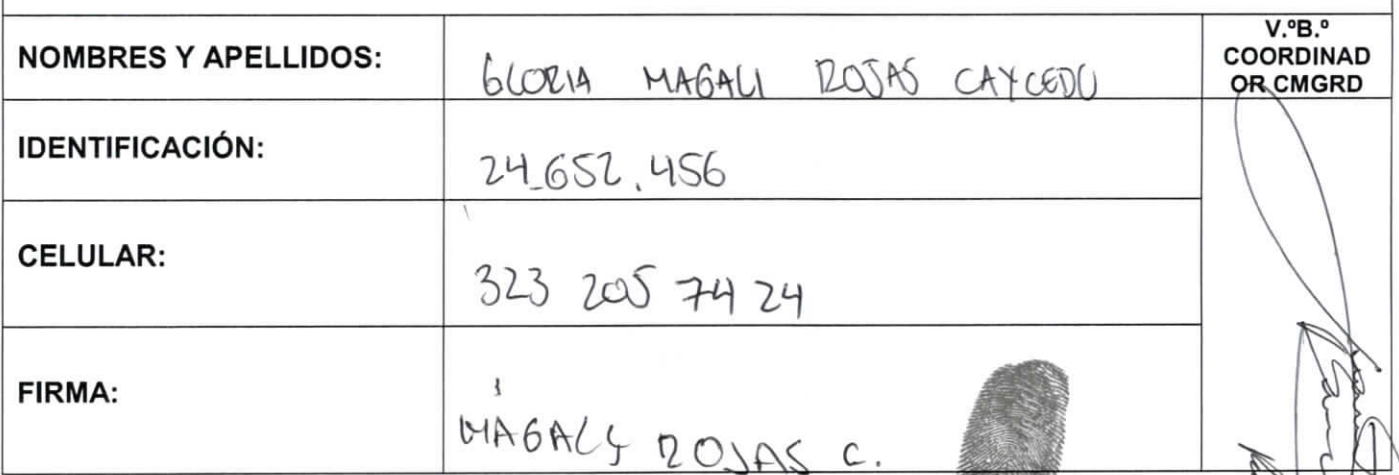 NOMBRES Y APELLIDOS: GLORIA MAGALI ROJAS CAYCEDO
V.ºB.º
COORDINAD
OR CMGRD
IDENTIFICACIÓN: 24.652.456
CELULAR: 323 205 74 24
FIRMA: MAGALY ROJAS C.